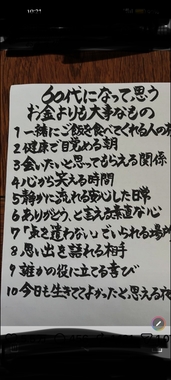 10:21
60代になって思う
お金よりも大事なもの
1 一緒にご飯を食べてくれる人の
2 健康で目覚める朝
3 会いたいと思ってもらえる関係
4 心から笑える時間
5 静かに流れる安心した日常
6 ありがとう、と言える素直な心
7 「気を遣わない」でいられる場所
8 思い出を語れる相手
9 誰かの役に立てる喜び
10 今日も生きててよかったと、思える